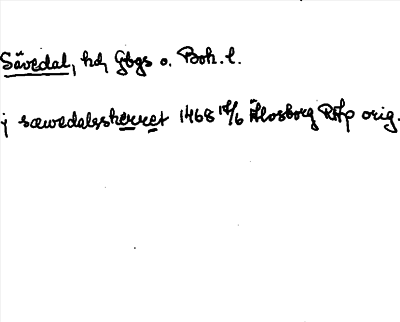 Sävedal, hd, Gbgs o. Boh. l.
j sæwedalssherret 1468 18/6 Älvsborg RAp orig.